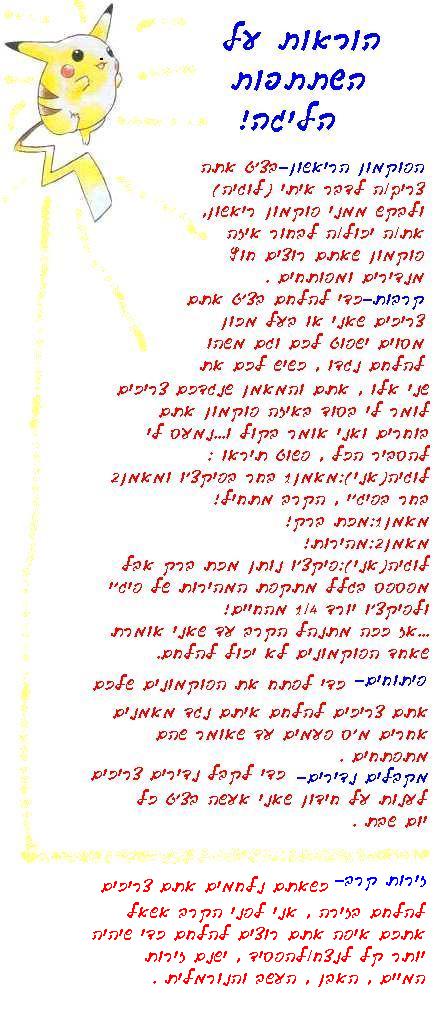 הוראות על
השתתפות
הליגה!
הפוקמון הריאשון-בצ'ט אתה
צריך/ה לדבר איתי (לוגיה)
ולבקש ממני פוקמון ריאשון,
את/ה יכול/ה לבחור איזה
פוקמון שאתם רוצים חוץ
מנדירים ומפותחים .
קרבות-כדי להלחם בצ'ט אתם
צריכים שאני או בעל מכון
מסוים ישפוט לכם וגם משהו
להלחם נגדו , כשיש לכם את
שני אלו , אתם והמאמן שנגדכם צריכים
לומר לי בסוד באיזה פוקמון אתם
בוחרים ואני אומר בקול ו...נמעס לי
להסביר הכל , פשוט תיראו :
לוגיה(אני):מאמן1 בחר בפיקצ'ו ומאמן2
בחר בפיג'י , הקרב מתחיל!
מאמן1:מכת ברק!
מאמן2:מהירות!
לוגיה(אני):פיקצ'ו נותן מכת ברק אבל
מפספס בגלל מתקפת המהירות של פיג'י
ולפיקצ'ו יורד 1/4 מהחיים!
...אז ככה מתנהל הקרב עד שאני אומרת
שאחד הפוקמונים לא יכול להלחם.
פיתוחים- כדי לפתח את הפוקמונים שלכם
אתם צריכים להלחם איתם נגד מאמנים
אחרים מ'ס פעמים עד שאומר שהם
מתפתחים .
מקבלים נדירים- כדי לקבל נדירים צריכים
לענות על חידון שאני אעשה בצ'ט כל
יום שבת .
זירות קרב- כשאתם נלחמים אתם צריכים
להלחם בזירה , אני לפני הקרב אשאל
אתכם איפה אתם רוצים להלחם כדי שיהיה
יותר קל לנצח/להפסיד , ישנם זירות
המיים , האבן , העשב והנורמלית .